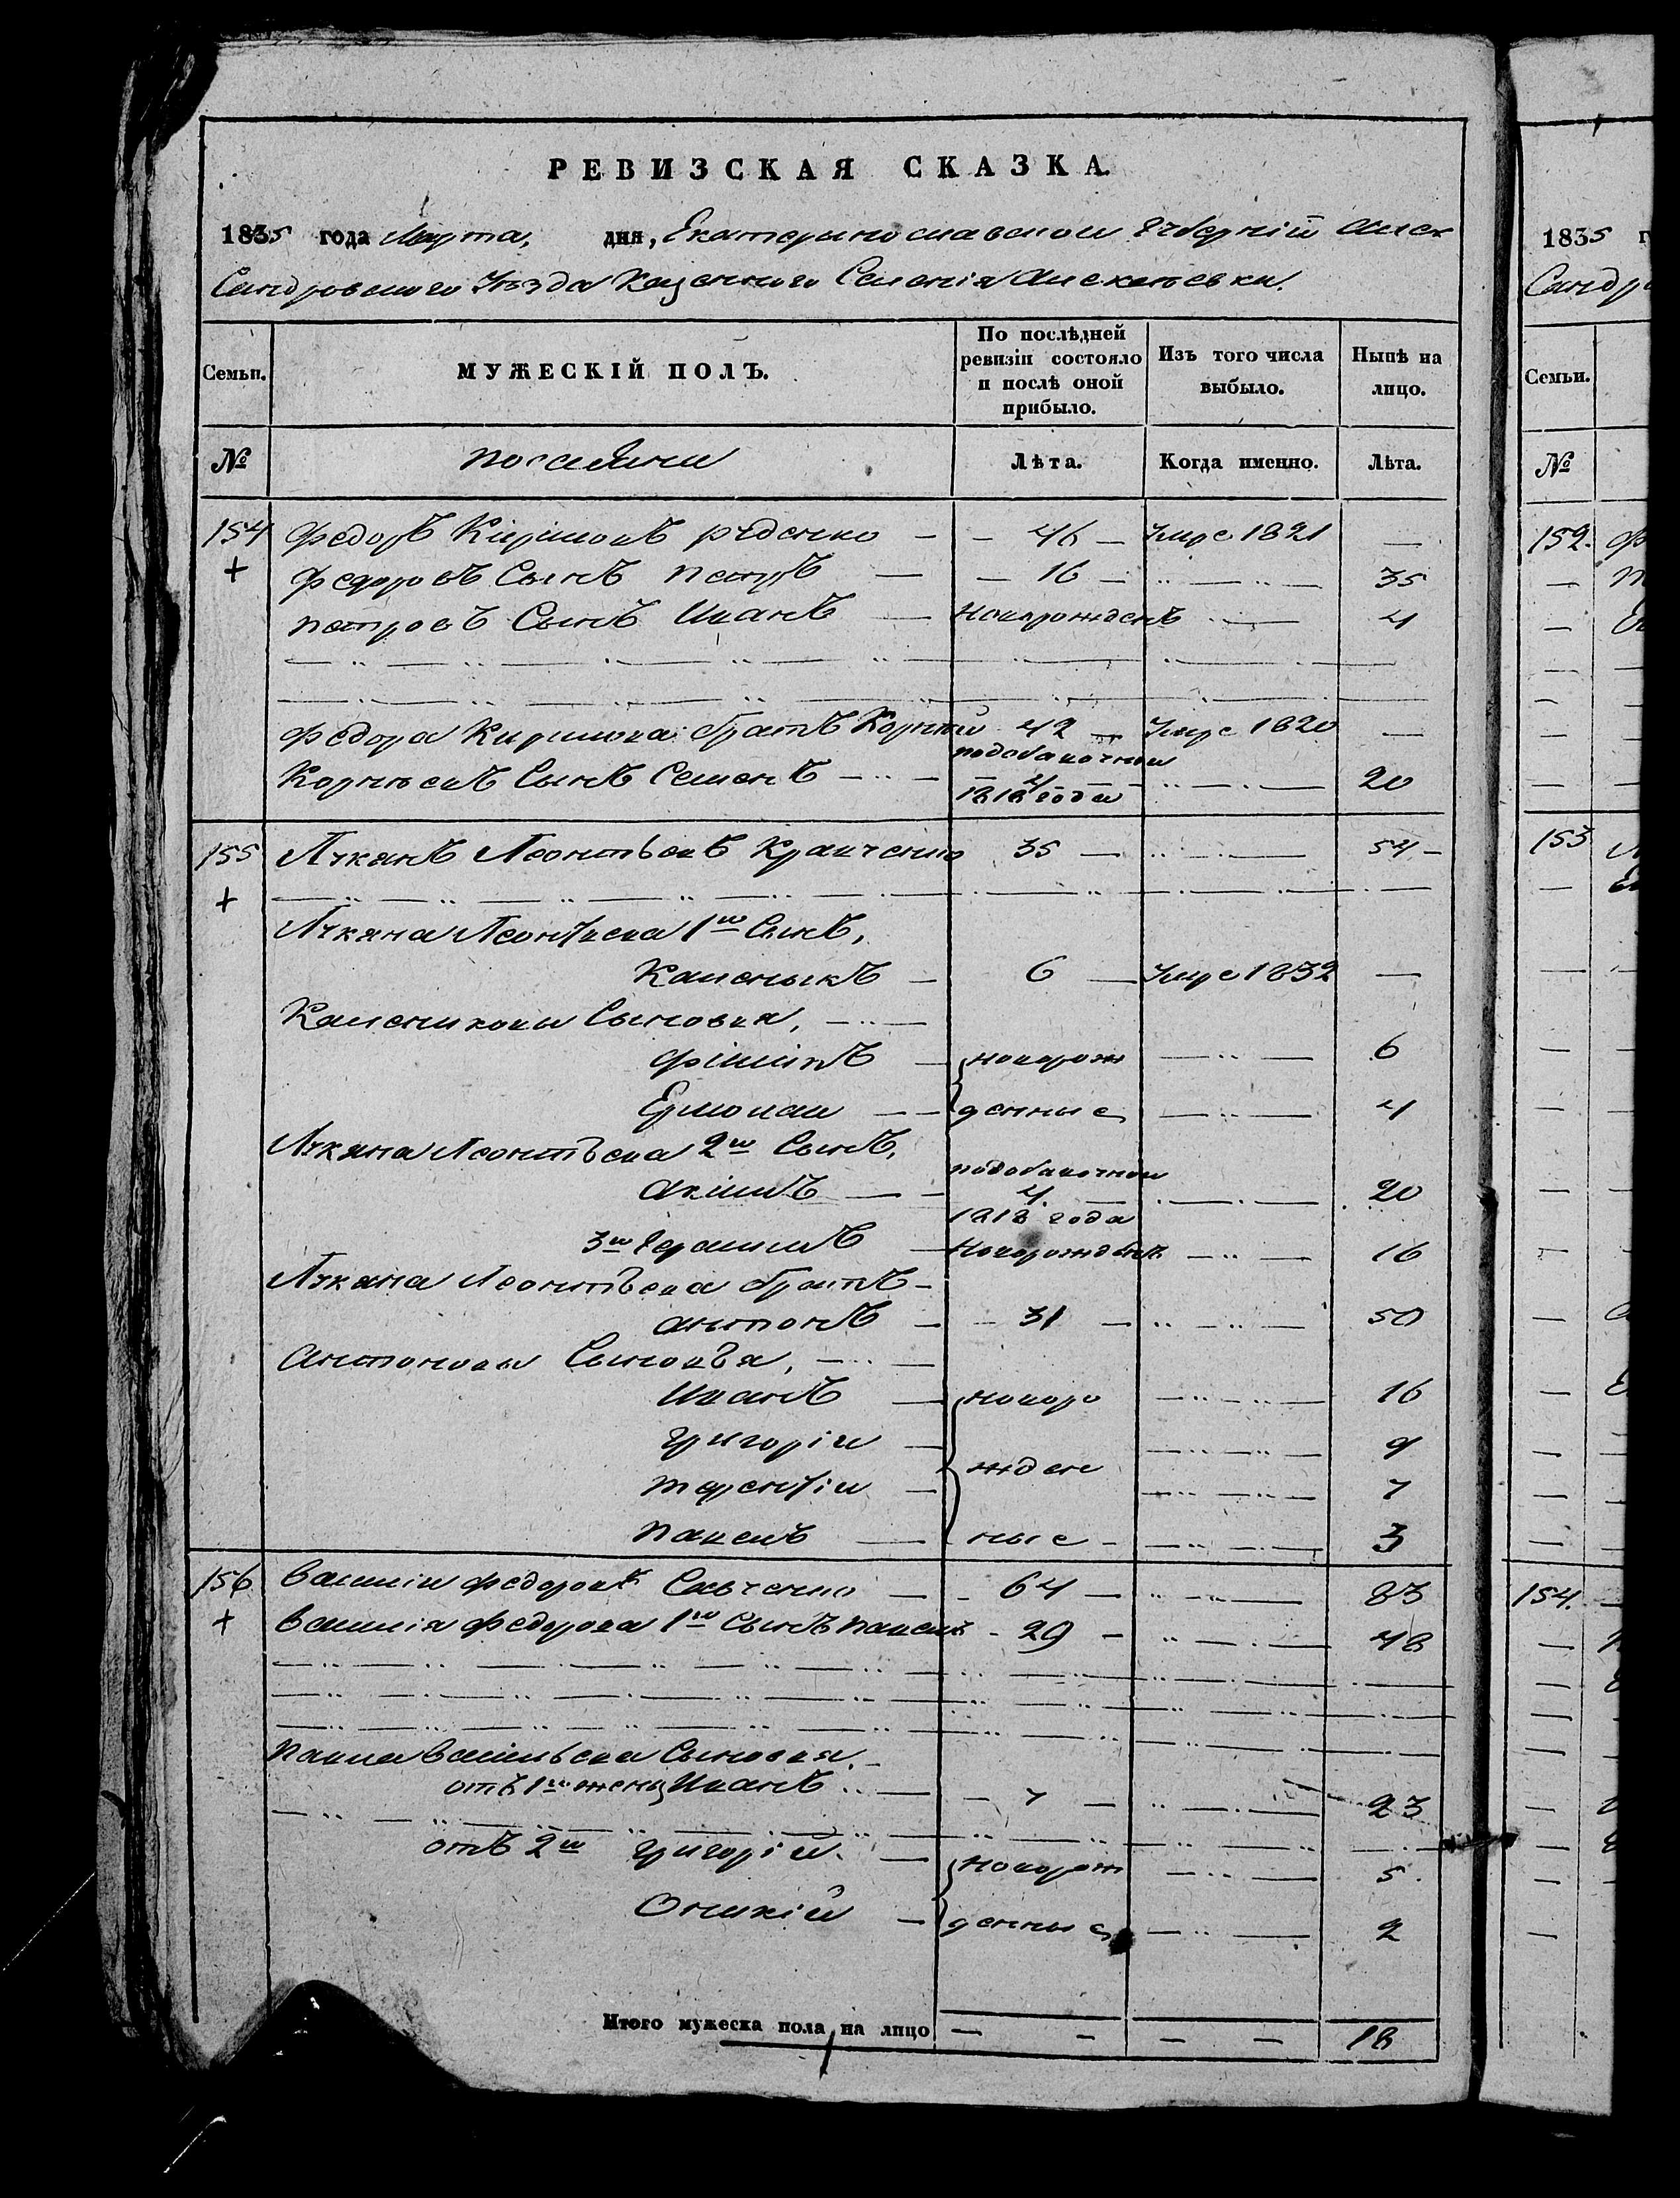 РЕВИЗСКАЯ СКАЗКА.
1835 года Марта, дня, Екатеринославской Губерніи Алек
сандровского Уѣзда Казенного Селенія Алексѣевки.
Семьи. МУЖЕСКІЙ ПОЛЪ. По послѣдней ревизіи состояло и послѣ оной прибыло. Изъ того числа выбыло. Нынѣ на лицо.
№ поселяни Лѣта. Когда именно. Лѣта.
154 Федоръ Кириловъ Руденко — 46 — Умре 1821 —
+ Федоровъ Сынъ Петръ — 16 — 35
Петровъ Сынъ Иванъ — Новорожденъ — 4
Федора Кирилова братъ Корній 42 — Умре 1820 —
Корнѣевъ Сынъ Семенъ — подобавочной 4 1818 года — 20
155 Лукянъ Леонтьевъ Кравченко 35 — 54 —
+
Лукяна Леонтьева 1й Сынъ,
Каленикъ — 6 — Умре 1832 —
Калениковы Сыновья, —
Філіпъ — новорож — 6
Ермолаи — денные — 4
Лукяна Леонтьева 2й Сынъ,
Акимъ — подобавочной 4. 1818 года — 20
3й Герасимъ — Новорожденъ — 16
Лукяна Леонтьева братъ —
Антонъ — 31 — 50
Антоновы Сыновья, —
Иванъ — новоро — 16
Григоріи — 9
Терентіи — жден — 7
Павелъ — ные — 3
156 Василіи Федоровъ Савченко — 64 — 83
+ Василія Федорова 1й Сынъ Павелъ — 29 — 48
Павла Васильева Сыновья,
отъ 1й жены Иванъ — 7 — 23
отъ 2й Григоріи. — новорож — 5.
Оникій — денные — 2
Итого мужеска пола на лицо — — — — 18
1835 г
Сандр
Семьи.
№
152.
153
154.